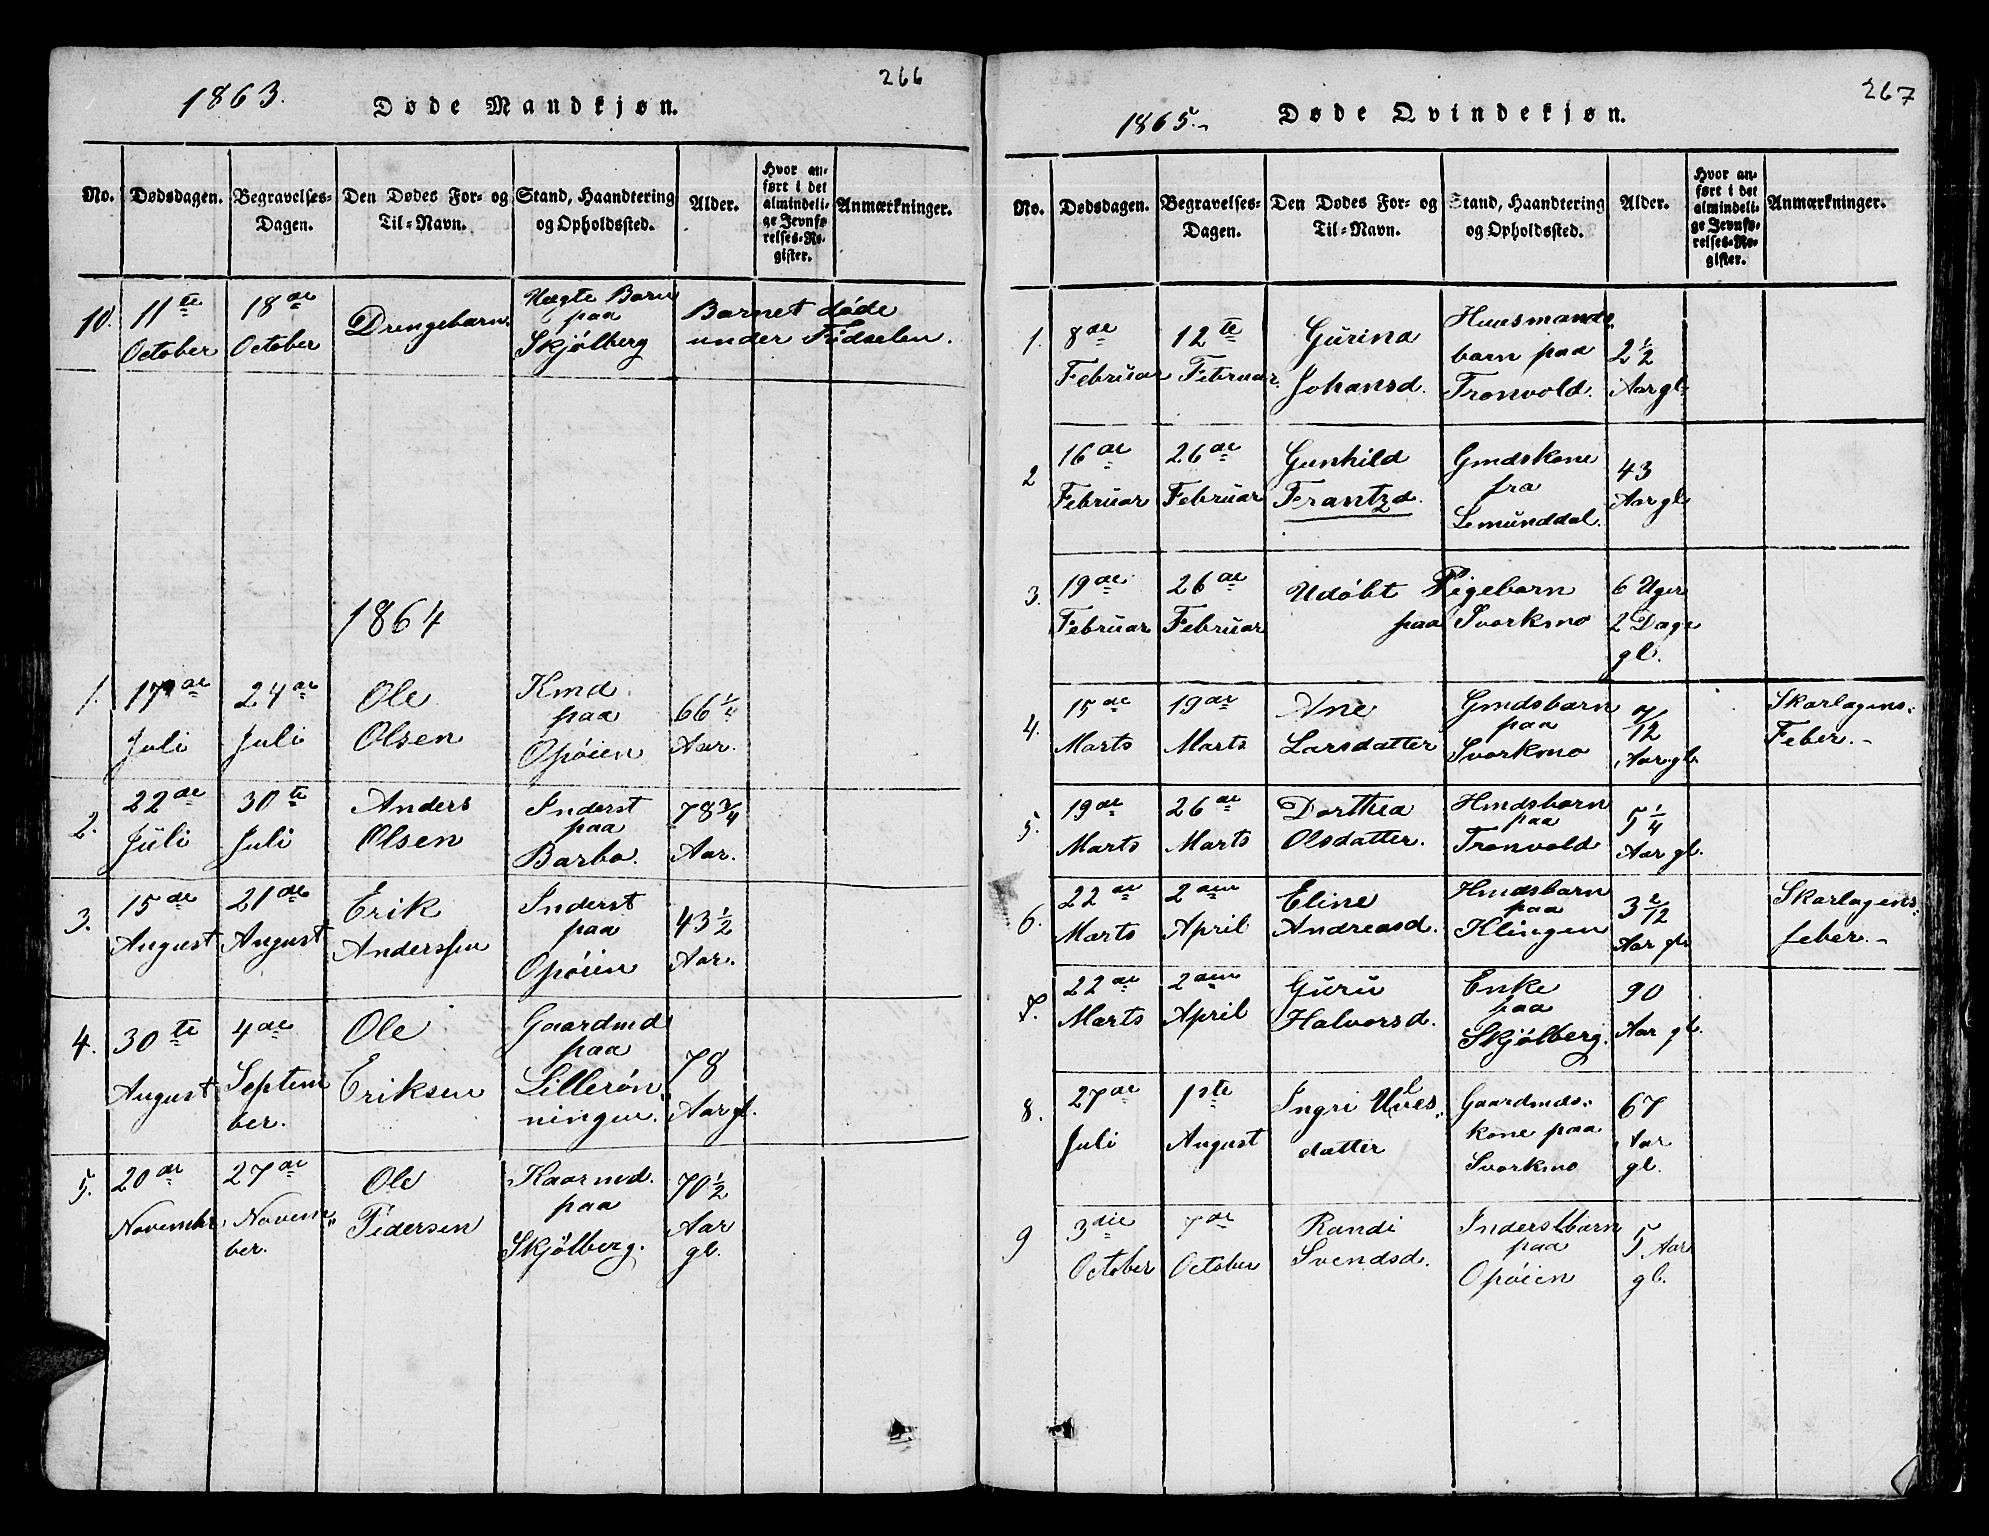 266
1863. Døde Mandkjøn.
No. Dødsdagen. Begravelses-Dagen. Den Dødes For- og Til-Navn. Stand, Haandtering og Opholdssted. Alder. Hvor anført i det almindelige Jevnførelses-Register. Anmærkninger.
10. 11te October 18de October Drengebarn. Uægte Barn paa Skjølberg Barnet døde under Fødselen.
1864
1. 17de Juli 24de Juli Ole Olsen Kmd. paa Opøien 66 1/4 Aar.
2. 22de Juli 30te Juli Anders Olsen Inderst paa Barbo. 78 3/4 Aar.
3. 15de August 21de August Erik Anderssen Inderst paa Opøien 43 1/2 Aar.
4. 30te August 4de September. Ole Eriksen Gaardmd paa Lillerønningen. 78 Aar gl.
5. 20de Novembr. 27de November. Ole Pedersen Kaarmd. paa Skjølberg. 70 1/2 Aar gl.
267
1865. Døde Qvindekjøn.
No. Dødsdagen. Begravelses-Dagen. Den Dødes For- og Til-Navn. Stand, Haandtering og Opholdssted. Alder. Hvor anført i det almindelige Jevnførelses-Register. Anmærkninger.
1. 8de Februar 12te Februar. Gurina Johansd. Huusmandsbarn paa Tronvold. 2 1/2 Aar gl.
2 16de Februar 26de Februar Gunhild Frantzd. Gmdskone fra Lemunddal. 43 Aar gl
3. 19de Februar 26de Februar Udøbt Pigebarn paa Svorkmo 6 Uger 2 Dage gl.
4. 15de Marts 19de Marts Ane Larsdatter Gmdsbarn paa Svorkmo 7/12 Aar gl. Skarlagens-Feber.
5. 19de Marts 26de Marts Dorthea Olsdatter. Hmdsbarn paa Tronvold 5 1/4 Aar gl.
6. 22de Marts 2den April Eline Andreasd. Hmdsbarn paa Klingen 3 2/12 Aar gl. Skarlagens-feber.
7. 22de Marts 2den April Guru Halvorsd. Enke paa Skjølberg. 90 Aar gl.
8. 27de Juli 1ste August Ingri datter Gaardmds-kone paa Svorkmo 67 Aar gl.
9 3die October 7de October Randi Svendsd. Inderstbarn paa Opøien 5 Aar gl.